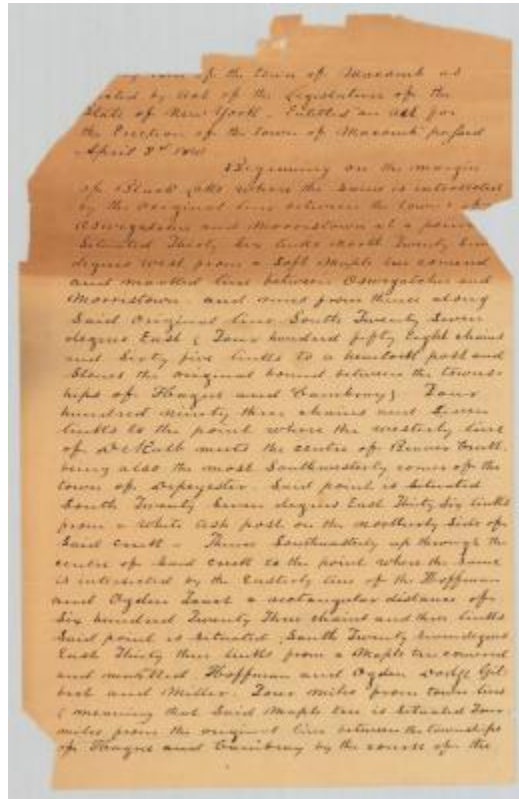 of the town of Macomb as
by act of the Legislature of the
State of New York. Entitled an act for
the Erection of the town of Macomb passed
April 3d
Beginning on the margin
of Black Lake where the same is intersected
by the original line between the towns of
Oswegatchie and Morristown at a point
Situated Thirty Six links North Twenty
degrees West from a Soft Maple tree
and marked line between Oswegatchie and
Morristown and runs from thence along
Said original line South Twenty Seven
degrees East ( Four hundred fifty eight chains
and Sixty five links to a hemlock post and
Stones the original bound between the towns=
hips of Hague and Cambray) Four
hundred ninety three chains and Seven
links to the point where the westerly line
of DeKalb meets the centre of Beaver Creek.
being also the most Southwesterly corner of the
town of Depeyster. Said point is Situated
South Twenty Seven degrees East Thirty Six links
from a White Ash post on the northerly Side of
Said creek - Thence Southwesterly up through the
centre of Said creek to the point where the Same
is intersected by the Easterly line of the Hoffman
and Ogden Tract a rectangular distance of
Six hundred Twenty Three chains and three links
Said point is Situated South Twenty Seven degrees
East Thirty three links from a Maple tree
and marked Hoffman and Ogden Dodge Gil
bert and Miller. Four miles from town line
( meaning that Said Maple tree is Situated Four
miles from the original line between the townships
of Hague and Cambray by the course of the